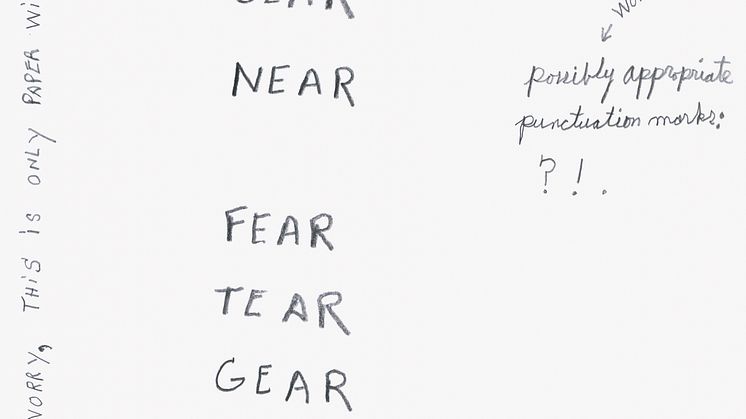 NEAR
FEAR
TEAR
GEAR
possibly appropriate
punctuation marks:
? ! .
WORRY, THiS iS ONLY PAPER